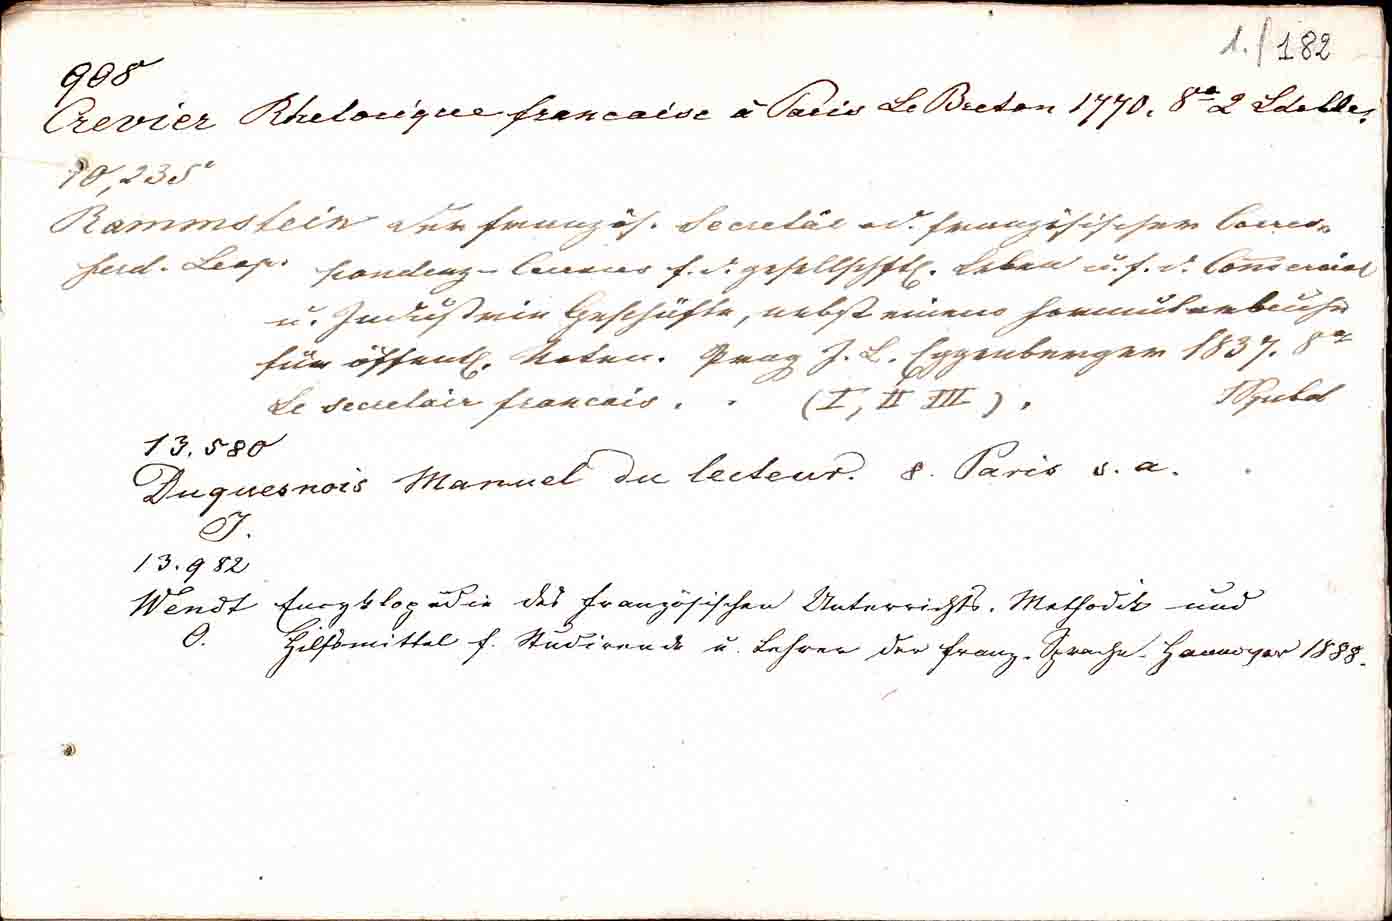 1./182
908
Crevier Rhetorique francaise à Paris Le Breton 1770. 8° 2
10,235
Rammstein der französ. Secretär od. französischer Corres-
Ferd. Leop. pondenz- f. d. gesellschftl. Leben u. f. d. Commercial
u. Industrie Geschäfte, nebst einem Formularbuche
für öffentl. Noten. Prag J. L. Eggenberger 1837. 8°
Le secretair francais. (I, II III).
13.580
Duquesnois Manuel du lecteur. 8. Paris s. a.
J.
13.982
Wendt Encyklopädie des französischen Unterrichts. Methodik und
O. Hilfsmittel f. Studirende u. Lehrer der franz. Sprache. Hannover 1888.